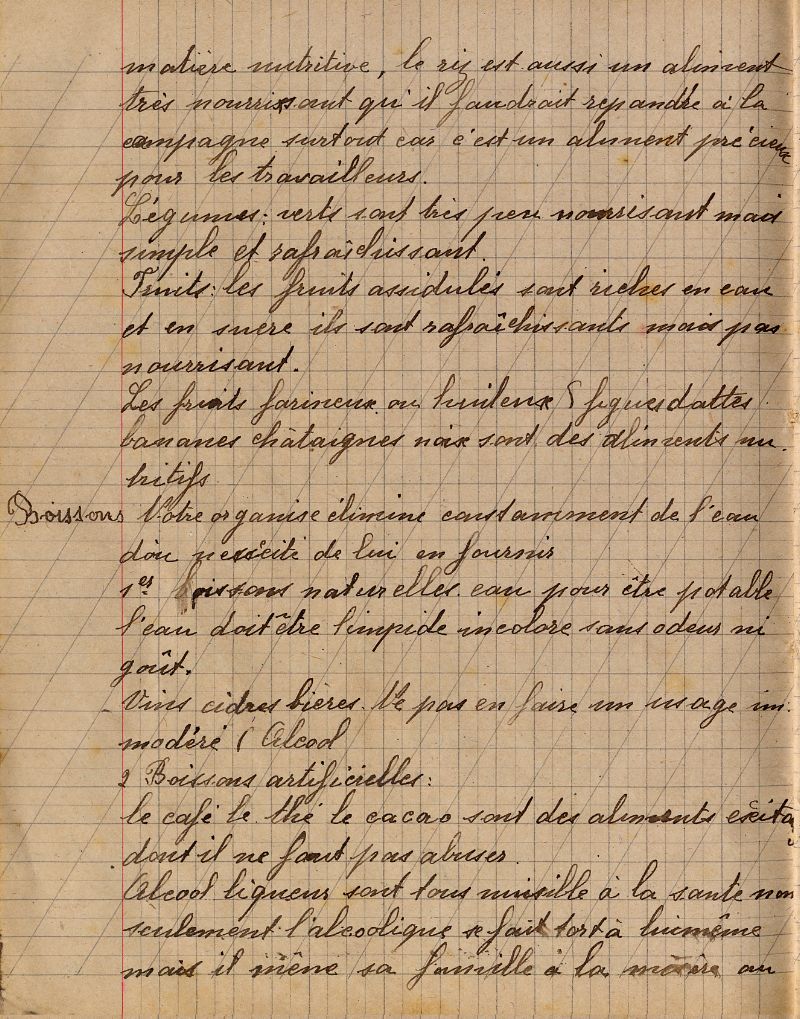 matière nutritive, le riz est aussi un aliment
très nourrissant qu'il faudrait repandre à la
campagne surtout car c'est un aliment précieux
pour les travailleurs.
Légumes: verts sont très peu nourrisant mais
simple et rafraîchissant.
Fruits: les fruits assidulés sont riches en eau
et en sucre ils sont rafraîchissants mais pas
nourrisant.
Les fruits farineux ou huileux ( figues dattes
bananes châtaignes noix sont des aliments nu-
tritifs
Boissons Notre organise élimine constamment de l'eau
d'où nessécité de lui en fournir
1es boissons naturelles. eau pour être potable
l'eau doit être limpide incolore sans odeur ni
goût.
Vins cidres bières. Ne pas en faire un usage im-
modéré ( Alcool
2 Boissons artificielles:
le café le thé le cacao sont des aliments
dont il ne faut pas abuser
Alcool liqueur sont tous à la sante non
seulement l'alcoolique se fait tort à luimême
mais il mène sa famille à la au